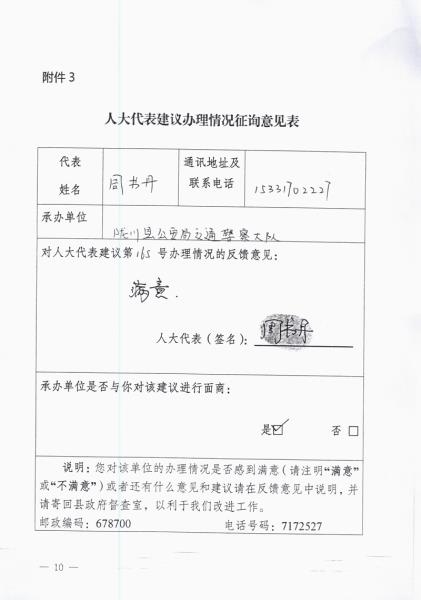 附件 3
人大代表建议办理情况征询意见表
代表姓名 周书丹 通讯地址及联系电话 15331702227
承办单位 陇川县公安局交通警察大队
对人大代表建议第165号办理情况的反馈意见：
满意.
人大代表（签名）：周书丹
承办单位是否与你对该建议进行面商：
是☑ 否☐
说明：您对该单位的办理情况是否感到满意（请注明“满意”
或“不满意”）或者还有什么意见和建议请在反馈意见中说明，并
请寄回县政府督查室，以利于我们改进工作。
邮政编码：678700 电话号码：7172527
— 10 —